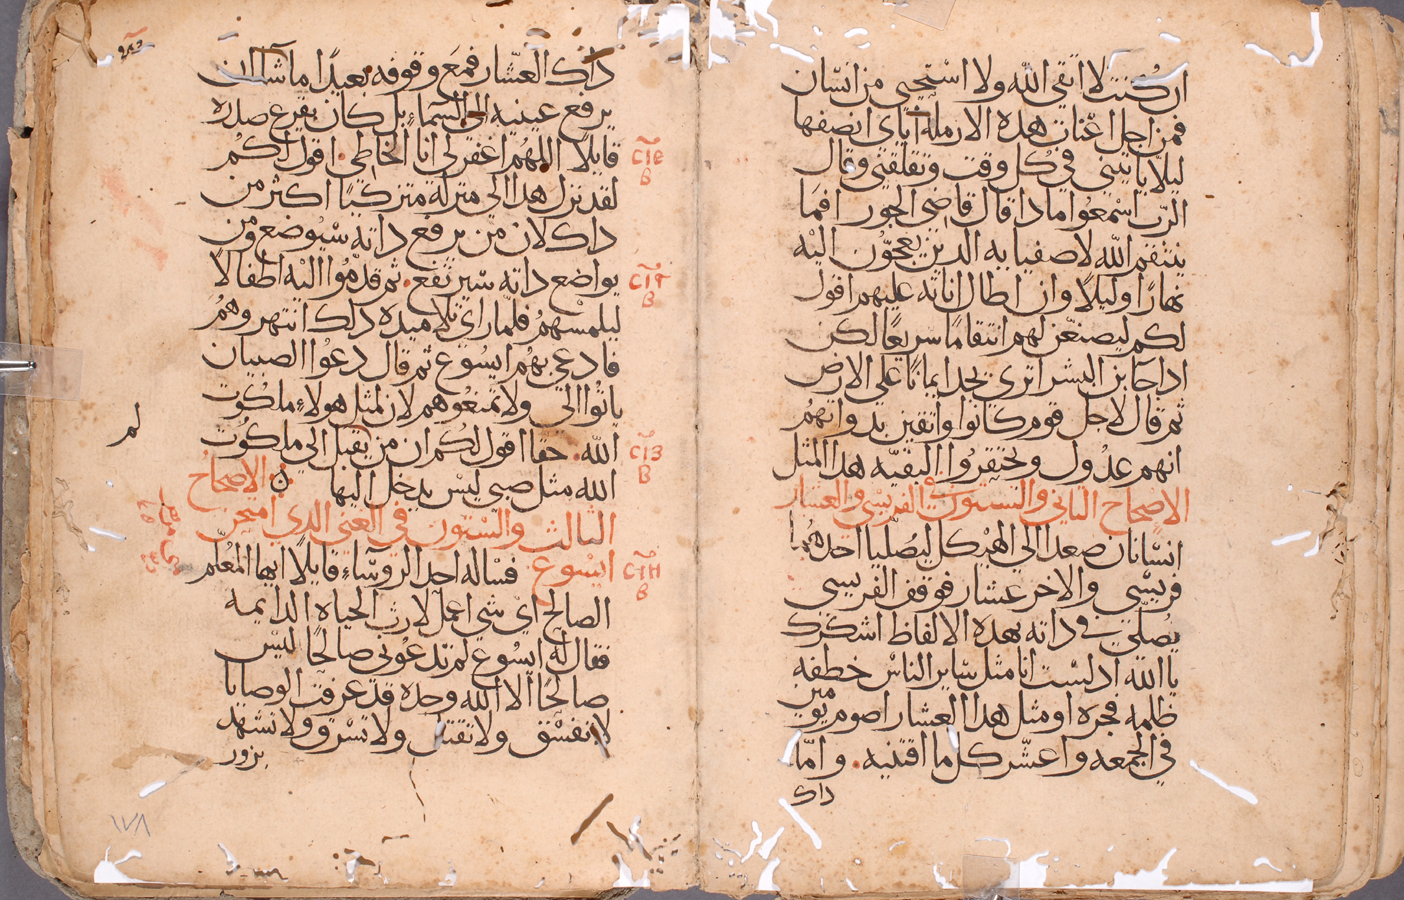 ان كنت لا اتقي الله ولا استحيي من انسان
فمن اجل اعنات هذه الارملة اياى انصفها
ليلا ياتيني في كل وقت وتقلقني وقال
الرب اسمعوا ماذا قال قاضي الجور افما
ينتقم الله لاصفيايه الدين يعجّون اليه
نهارًا وليلًا وان اطال اناته عليهم اقول
لكم ليصنعن لهم انتقامًا سريعًا لكن
اداجا ابن البشر اترى يجد ايمانًا علي الارض
ثم قال لاجل قوم كانوا واثقين بدواتهم
انهم عدول ويحتقروا البقيه هدا المثل
الاصحاح الثاني والستون في الفريسي والعشار
انسانان صعدا الي الهيكل ليُصليا احدهما
فريسّي والاخر عشار فوقف الفريسي
يُصلي في داته بهده الالفاظ اشكرك
يا الله ادلست انا مثل ساير الناس خطفه
ظلمه فجره او مثل هدا العشار اصوم يومين
في الجمعه واعشّر كل ما اقتنيه. وامّا
داك
داك العشار فمع وقوفه بعيدًا ما شا ان
يرفع عينيه الى السماء بل كان يقرع صدره
قايلًا اللهُم اغفر لي انا الخاطي. اقول لكم
لقد نزل هدا الي منزله متزكيًا اكثر من
داك لان من يرفع داته سيُوضع ومن
يواضع داته سيرتفع. ثم قدمُوا اليه اطفالًا
ليلمسهُم فلما راي تلاميده دلك انتهروهُم
فادعي بهُم ايسُوع ثم قال دعُوا الصبيان
ياتُوا الي ولا تمنعُوهم لان لمثل هولاء ملكُوت
الله. حقا اقول لكُم ان من يقبل الي ملكُوت
الله مثل صبي ليس يدخل اليها الاصحاح
الثالث والستون في الغني الدي امتحن
ايسُوع فساله احد الروسَاء قايلًا ايها المُعلّم
الصالح اي شي اعمل لارث الحياه الدايمه
فقال له ايسُوع لم تدعُوني صالحًا ليس
صالحًا الا الله وحده قد عرفت الوصايا
لا تفسق ولا تقتل ولا تسرق ولا تشهد
بزور
١٧٨